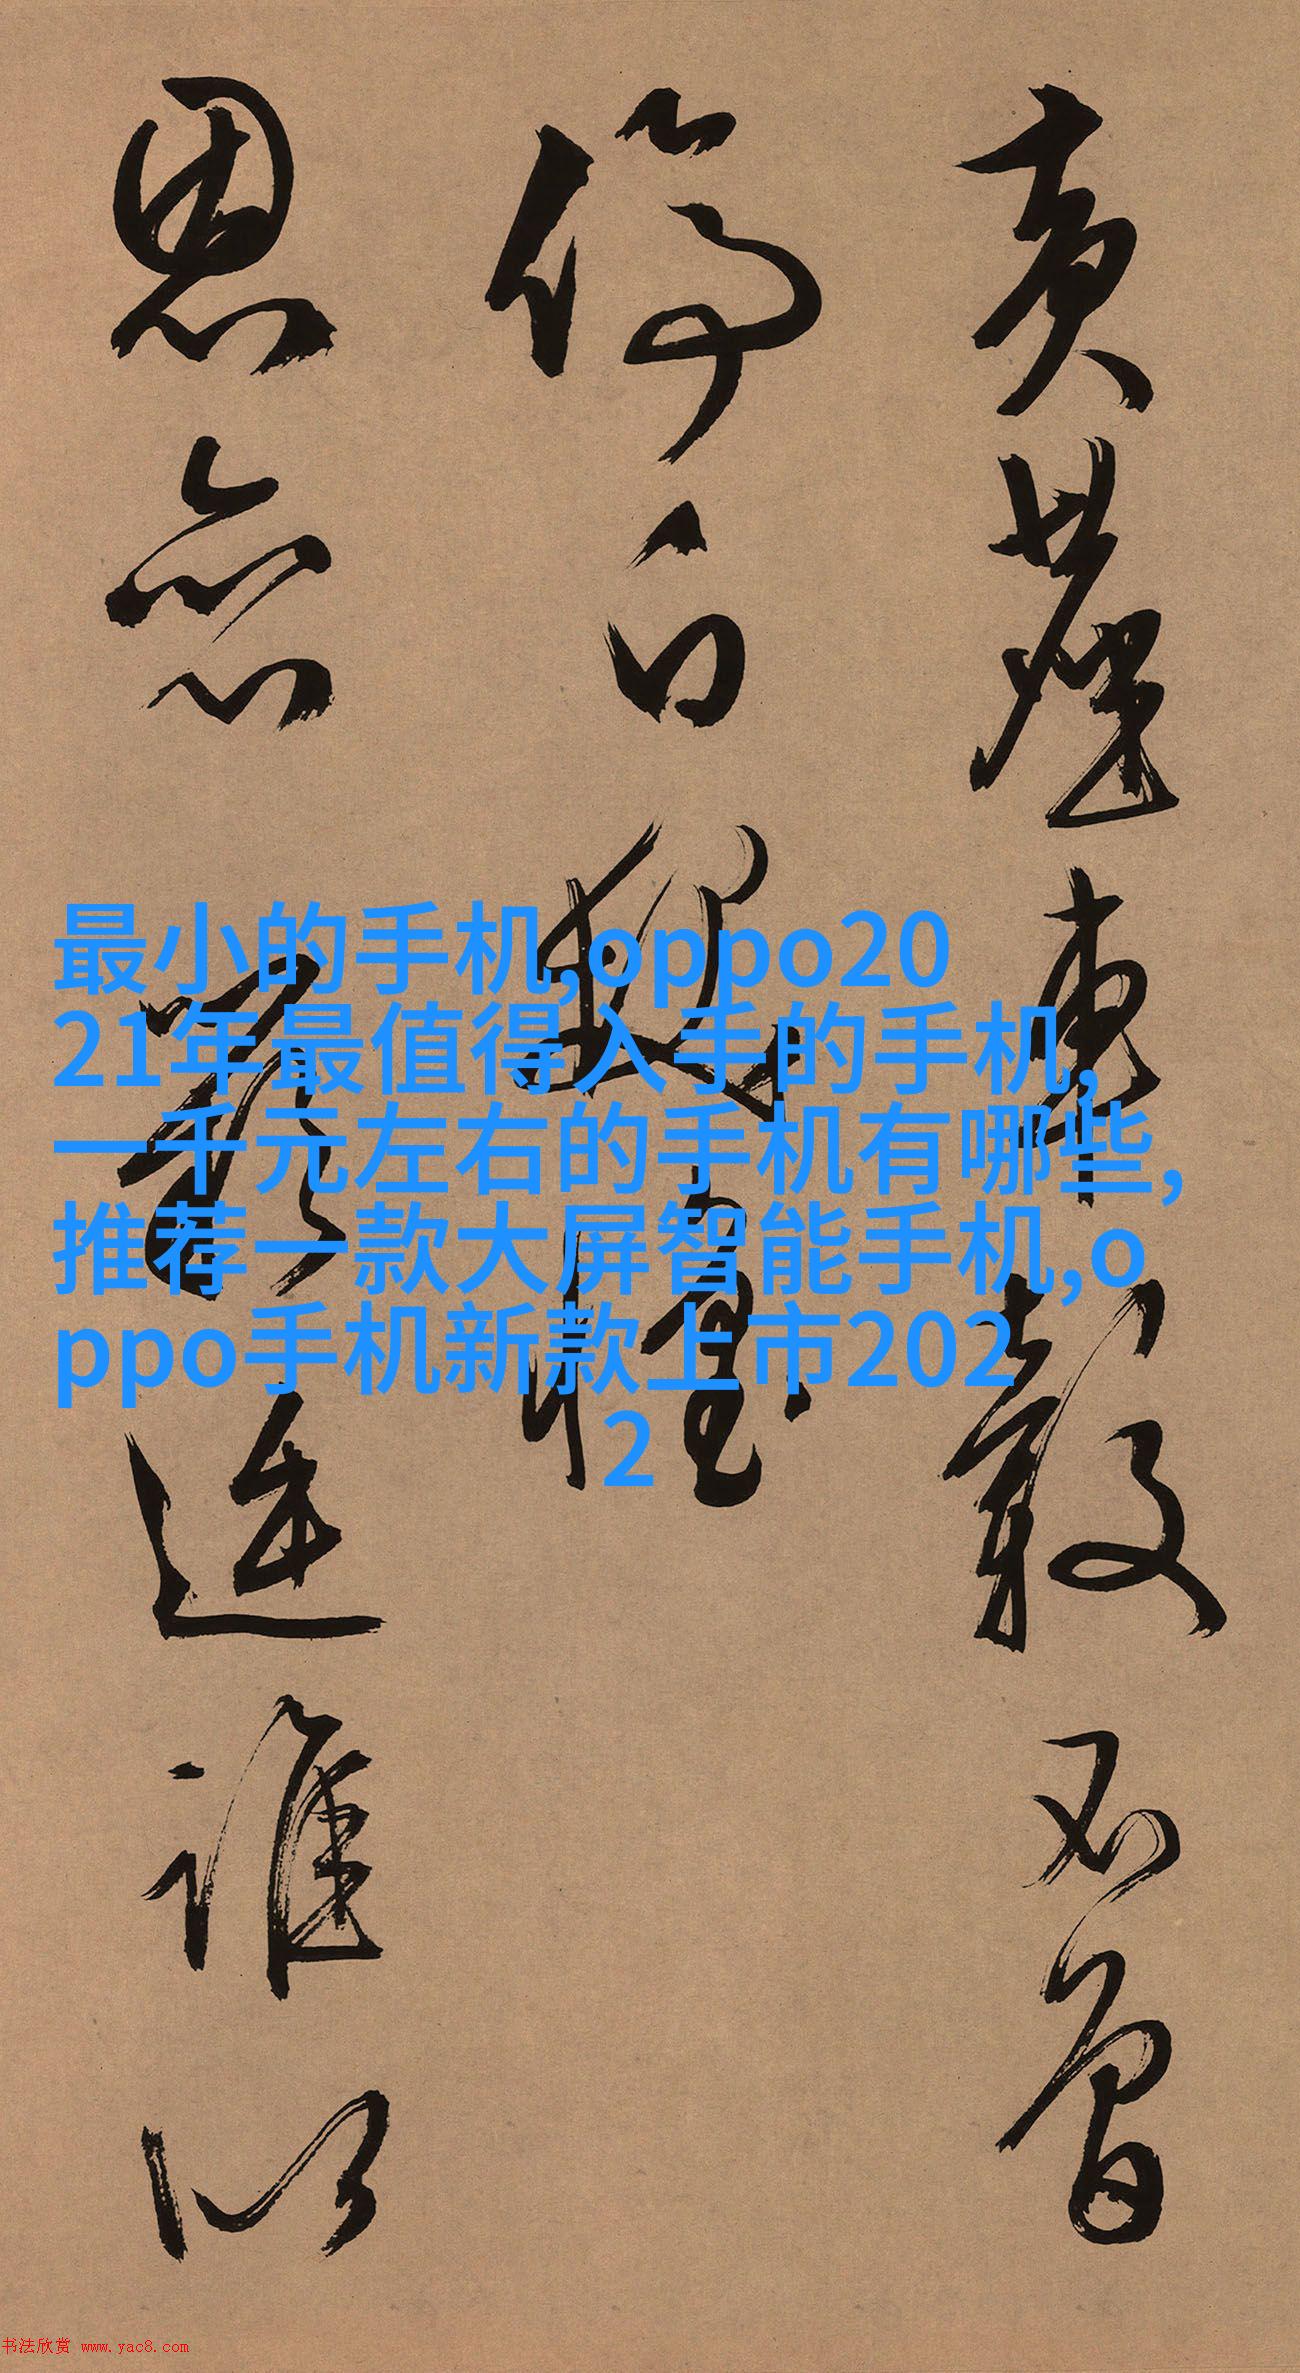 黄塵車轂不曾
停白
連誰以
最小的手机,oppo20
21年最值得入手的手机,
一千元左右的手机有哪些,
推荐一款大屏智能手机,o
ppo手机新款上市202
2
书法欣赏 www.yac8.com